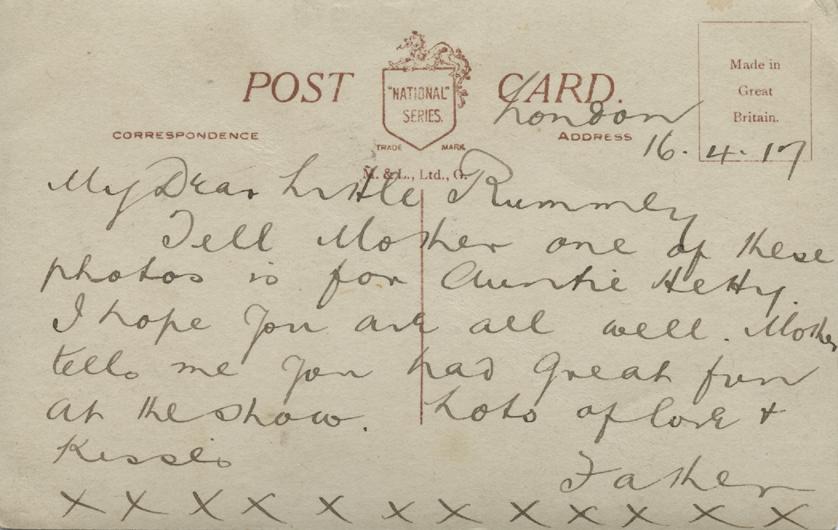 POST CARD.
"NATIONAL"
SERIES.
TRADE MARK
M. & L., Ltd., G.
Made in
Great
Britain.
CORRESPONDENCE
ADDRESS
London
16.4.17
My Dear Little Rummey
Tell Mother one of these
photos is for Auntie Hetty.
I hope you are all well. Mother
tells me you had great fun
at the show. Lots of love +
Kisses
Father
X X X X X X X X X X X X